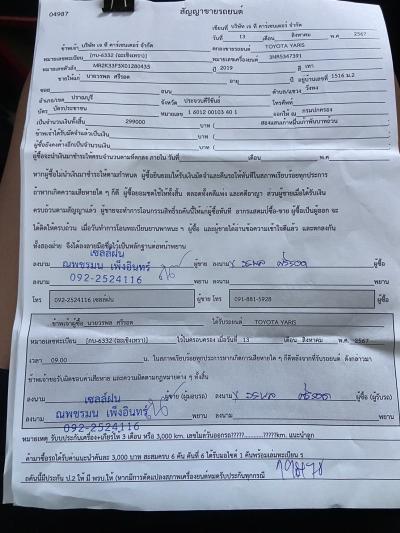 04987
สัญญาขายรถยนต์
เขียนที่ บริษัท เจ ดี คาร์เซนเตอร์ จำกัด
วันที่ 13 เดือน สิงหาคม พ.ศ 2567
ข้าพเจ้า บริษัท เจ ดี คาร์เซนเตอร์ จำกัด ตกลงขายรถยนต์ TOYOTA YARIS
หมายเลขทะเบียน [กบ-6332 (ฉะเชิงเทรา)] หมายเลขเครื่องยนต์ 3NR5347391
หมายเลขตัวถัง MR2K33F3X01280435 ปี 2019 สี เทา
ขายให้แก่ นายวรพล ศรีรอด อายุ ปี อยู่บ้านเลขที่ 1516 ม.2
ซอย ถนน ตำบล/แขวง วังดาล
อำเภอ/เขต จังหวัด โทรศัพท์
บัตร บัตรประชาชน หมายเลข 1 6012 00103 60 1 ออกให้ ณ กรมปกครอง
เป็นจำนวนเงินทั้งสิ้น 299000 บาท ( สองแสนเก้าหมื่นเก้าพันบาทถ้วน
ข้าพเจ้าได้รับมัดจำแล้วเป็นเงิน บาท (
ผู้ซื้อยังคงค้างอีกเป็นจำนวนเงิน บาท (
ผู้ซื้อจะนำเงินมาชำระให้ครบจำนวนตามที่ตกลง ภายใน วันที่ เดือน พ.ศ
หากผู้ซื้อไม่นำเงินมาชำระให้ตามกำหนด ผู้ซื้อยินยอมให้ริบเงินมัดจำและคืนรถให้ทันทีในสภาพเรียบร้อยทุกประการ
ถ้าหากเกิดความเสียหายใด ๆ ก็ดี ผู้ซื้อยอมชดใช้ให้ทั้งสิ้น ตลอดทั้งคดีแพ่ง และคดีอาญา ส่วนผู้ขายเมื่อได้รับเงิน
ครบถ้วนตามสัญญาแล้ว ผู้ขายจะทำการโอนกรรมสิทธิ์รถคันนี้ให้แก่ผู้ซื้อทันที อากรแสตมป์ซื้อ-ขาย ผู้ซื้อเป็นผู้ออก จะ
ได้คิดให้ครบถ้วน เมื่อวันทำการโอนทะเบียนยานพาหนะ ฯ ผู้ซื้อ และผู้ขายได้อ่านข้อความเข้าใจดีแล้ว และตกลงกัน
ทั้งสองฝ่าย จึงได้ลงลายมือชื่อไว้เป็นหลักฐานต่อหน้าพยาน
ลงนาม เซลล์ฝน ผู้ขาย ลงนาม วรพล ศรีรอด ผู้ซื้อ
ลงนาม ณพชรมน เพ็งอินทร์ พยาน ลงนาม พยาน
092-2524116
โทร 092-2524116 เซลล์ฝน ผู้ขาย โทร 091-881-5928 ผู้ซื้อ
ข้าพเจ้าผู้ซื้อ นายวรพล ศรีรอด ได้รับรถยนต์ TOYOTA YARIS
หมายเลขทะเบียน [กบ-6332 (ฉะเชิงเทรา)] ไว้ในครอบครอง เมื่อวันที่ 13 เดือน สิงหาคม พ.ศ. 2567
เวลา 09.00 น. ในสภาพเรียบร้อยทุกประการหากเกิดการเสียหายใด ๆ ก็ดีหลังจากที่รับรถยนต์ ดังกล่าวมา
ข้าพเจ้าขอรับผิดชอบค่าเสียหาย และความผิดตามกฎหมายต่าง ๆ ทั้งสิ้น
ลงนาม เซลล์ฝน ผู้ขาย (ผู้มอบรถ) ลงนาม วรพล ศรีรอด ผู้ซื้อ (ผู้รับรถ)
ลงนาม ณพชรมน เพ็งอินทร์ พยาน ลงนาม พยาน
092-2524116
หมายเหตุ รับประกันเครื่อง+เกียร์ให้ 3 เดือน หรือ 3,000 km. เลขไมล์วันออกรถ?????.............????km. แนะนำลูก
ค้ามาซื้อรถได้รับค่าแนะนำคันละ 3,000 บาท สะสมครบ 6 คัน คันที่ 6 ได้รับมอไซค์ 1 คันพร้อมเล่มทะเบียน ร
ถคันนี้มีประกัน ป.2 ให้ มี พรบ.ให้ (หากมีการดัดแปลงสภาพเครื่องยนต์หมดรับประกันทุกกรณี